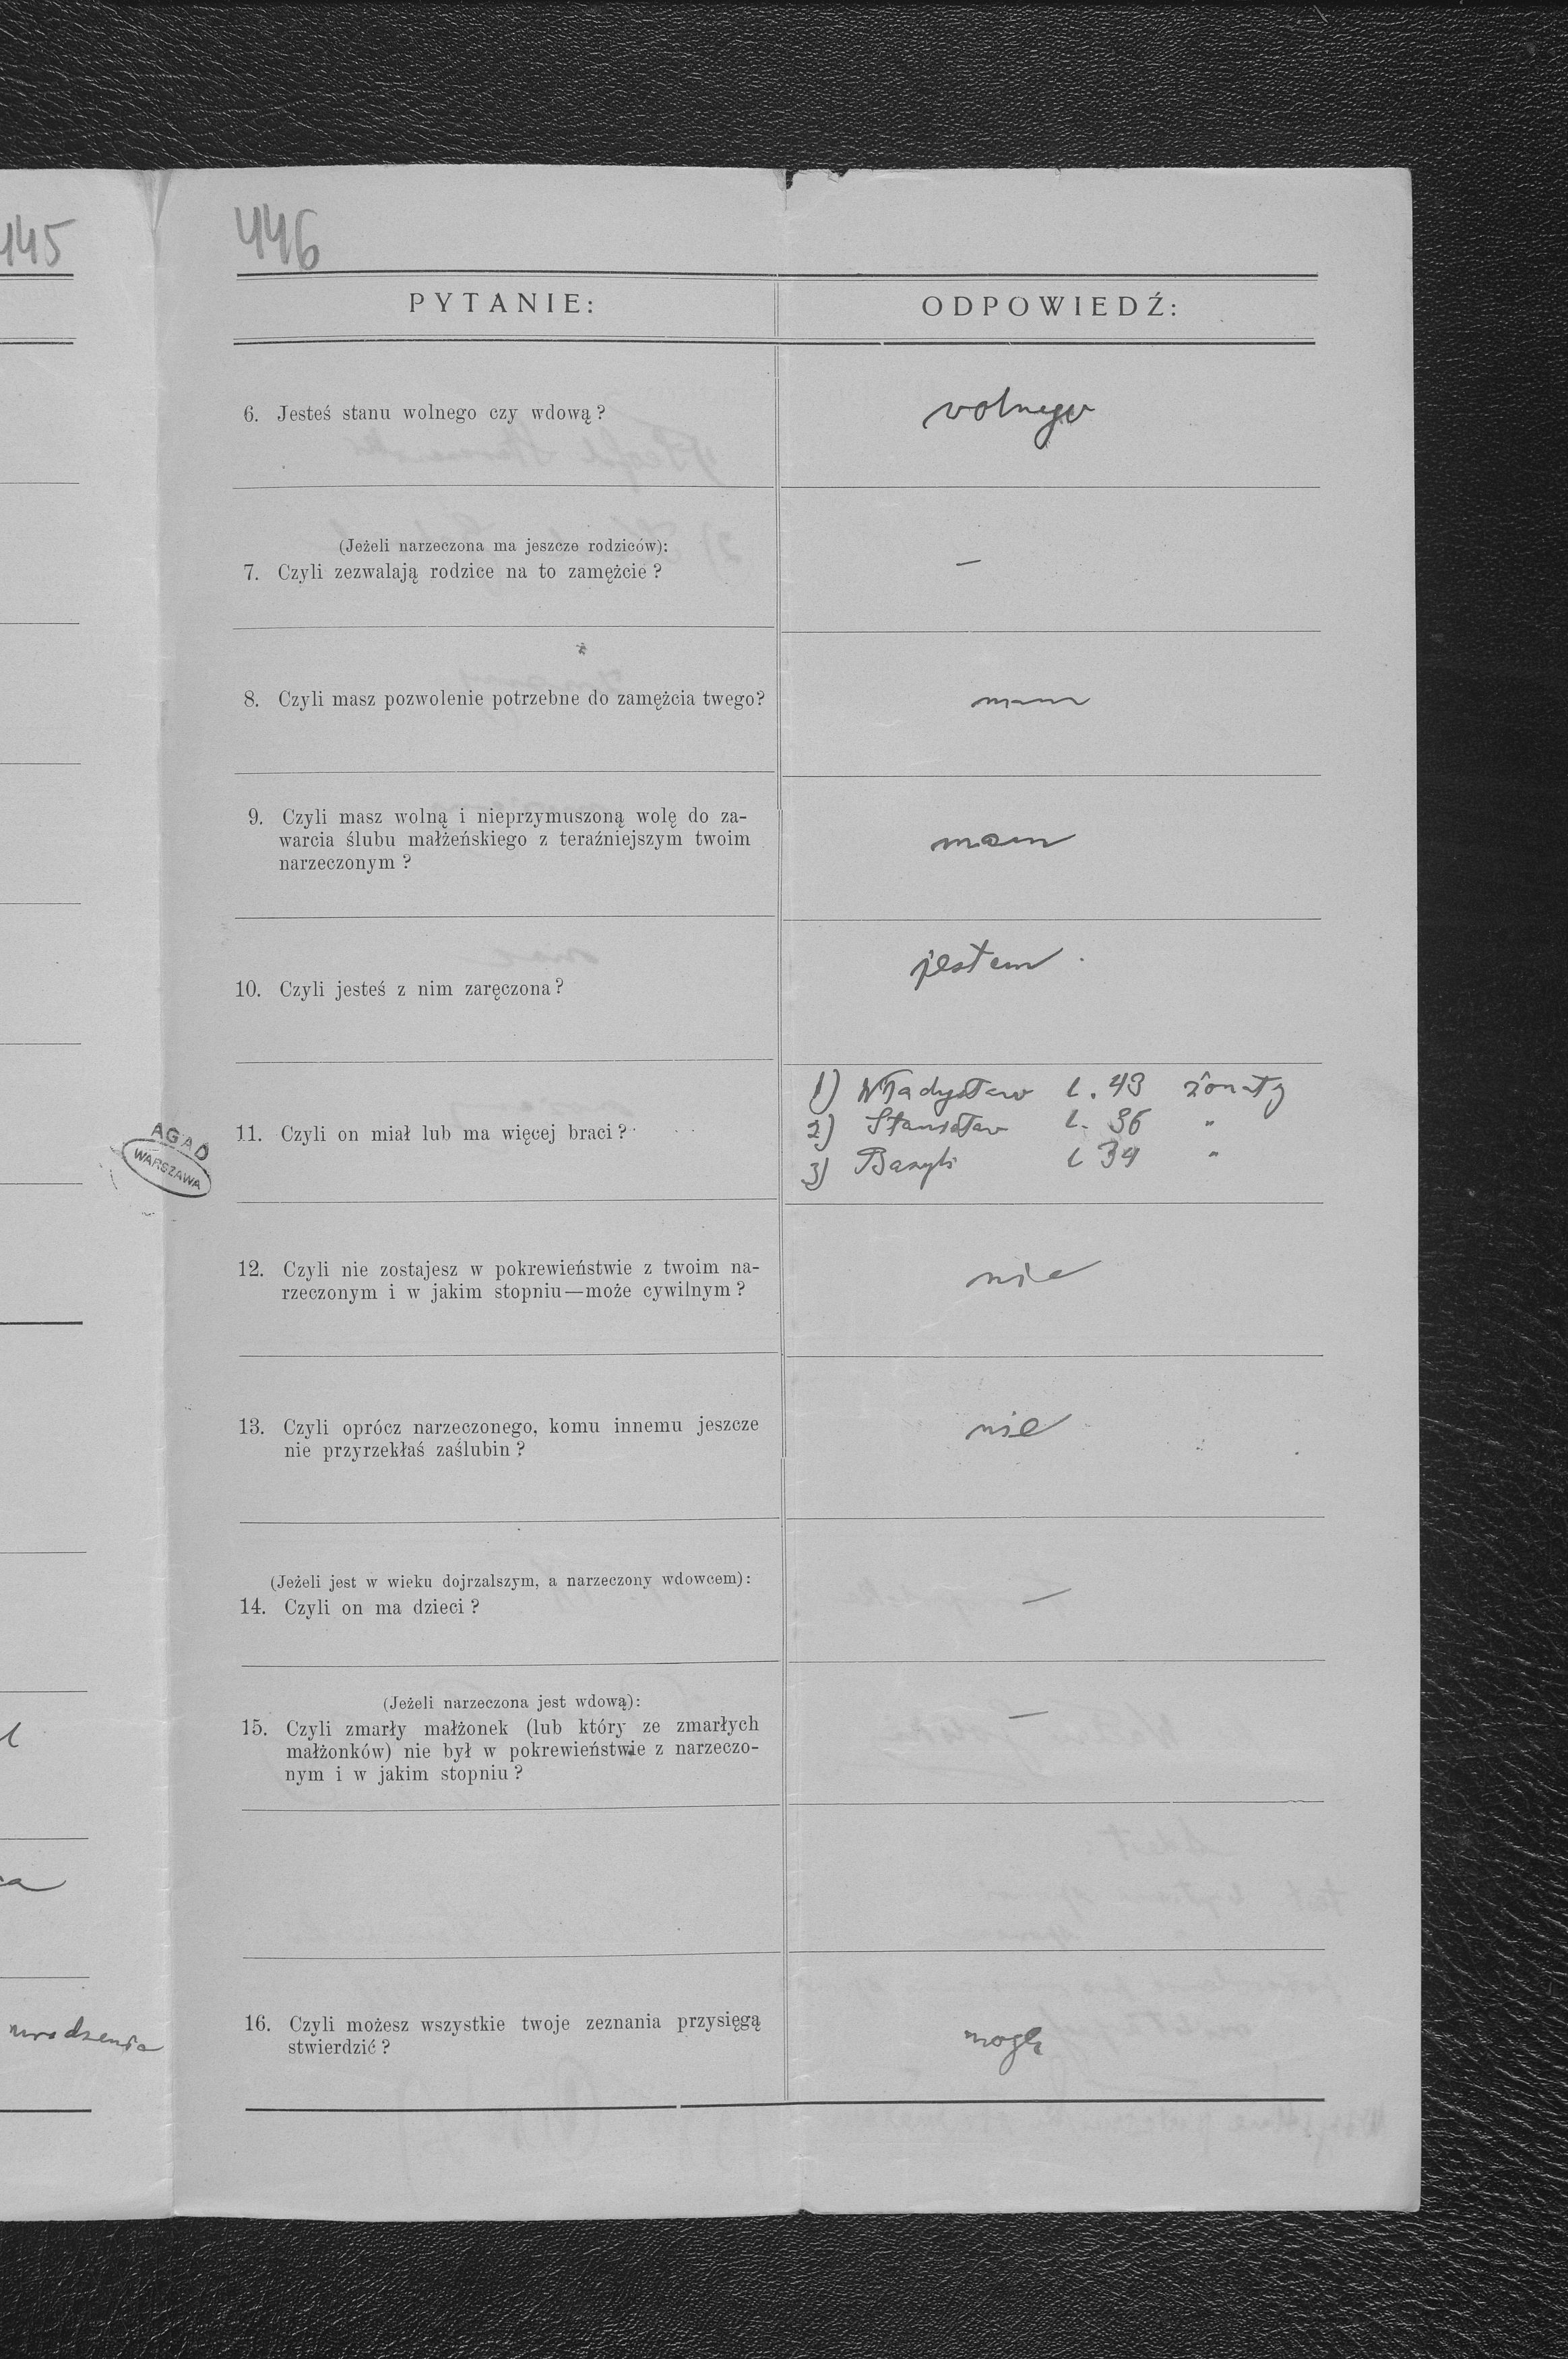 446
PYTANIE: ODPOWIEDŹ:
6. Jesteś stanu wolnego czy wdową? wolnego
(Jeżeli narzeczona ma jeszcze rodziców):
7. Czyli zezwalają rodzice na to zamężcie? —
8. Czyli masz pozwolenie potrzebne do zamężcia twego? mam
9. Czyli masz wolną i nieprzymuszoną wolę do za-
warcia ślubu małżeńskiego z teraźniejszym twoim
narzeczonym? mam
10. Czyli jesteś z nim zaręczona? jestem
11. Czyli on miał lub ma więcej braci?
1) Władysław l. 43 żonaty
2) Stanisław l. 36 "
3) Bazyli l 34 "
AGAD
WARSZAWA
12. Czyli nie zostajesz w pokrewieństwie z twoim na-
rzeczonym i w jakim stopniu—może cywilnym? nie
13. Czyli oprócz narzeczonego, komu innemu jeszcze
nie przyrzekłaś zaślubin? nie
(Jeżeli jest w wieku dojrzalszym, a narzeczony wdowcem):
14. Czyli on ma dzieci? —
(Jeżeli narzeczona jest wdową):
15. Czyli zmarły małżonek (lub który ze zmarłych
małżonków) nie był w pokrewieństwie z narzeczo-
nym i w jakim stopniu? —
16. Czyli możesz wszystkie twoje zeznania przysięgą
stwierdzić? mogę
145
urodzenia